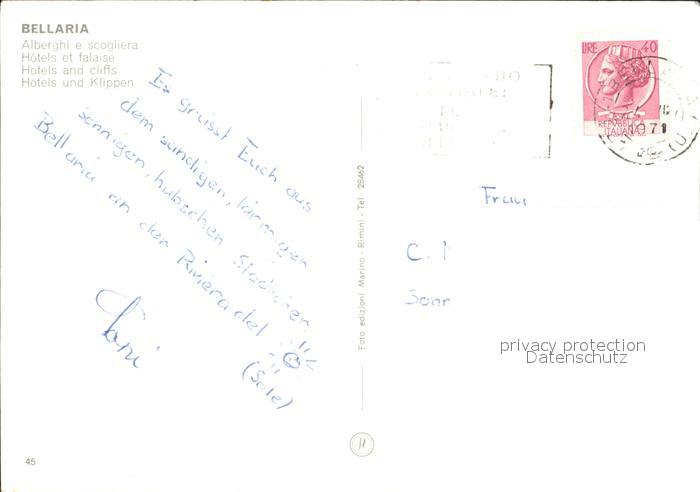 BELLARIA
Alberghi e scogliera
Hôtels et falaise
Hotels and cliffs
Hotels und Klippen
Es grüsst Euch aus
dem sündigen, lärmigen
sonnigen, hübschen Städtchen
Bellaria an der Riviera del
(Sole)
Foto edizioni Marino - Rimini - Tel. 28462
LIRE 40
REPUBBLICA
ITALIANA
1971
Frau
C.
privacy protection
Datenschutz
45